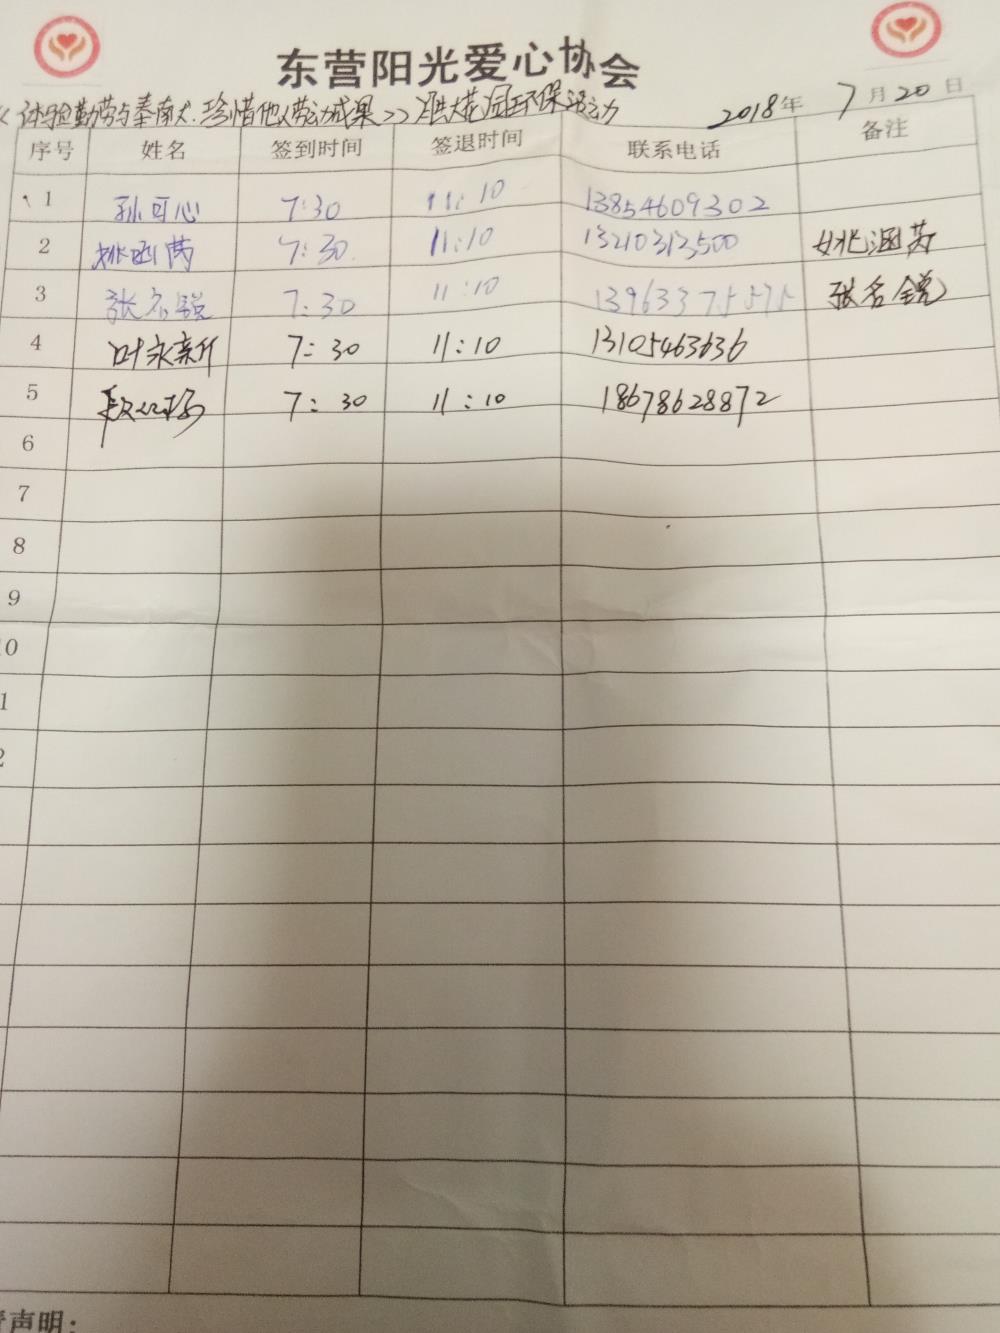 东营阳光爱心协会
《体验勤劳与奉献，珍惜他人劳动成果》胜大花园环保活动 2018年 7月20日
序号 姓名 签到时间 签退时间 联系电话 备注
1 孙可心 7:30 11:10 13854609302
2 姚涵芮 7:30 11:10 13210313500 姚涵芮
3 张名锐 7:30 11:10 13963375575 张名锐
4 叶永新 7:30 11:10 13105463636
5 7:30 11:10 18678628872
6
7
8
9
0
1
2
声明：